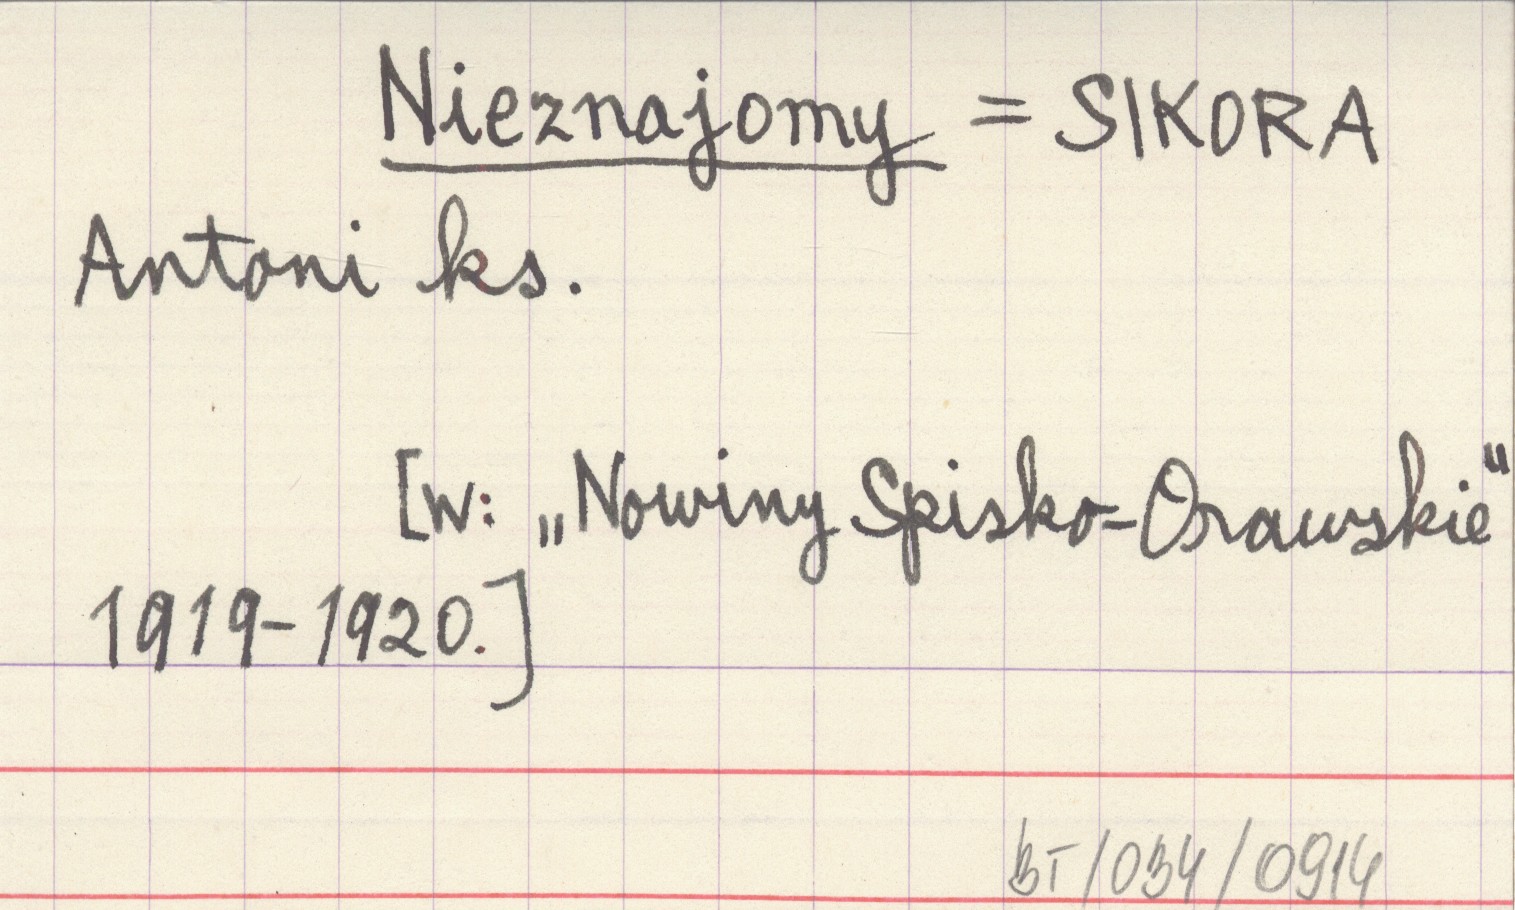 Nieznajomy = SIKORA
Antoni ks.
[w: „Nowiny Spisko-Orawskie"
1919-1920.]
BT/034/0914